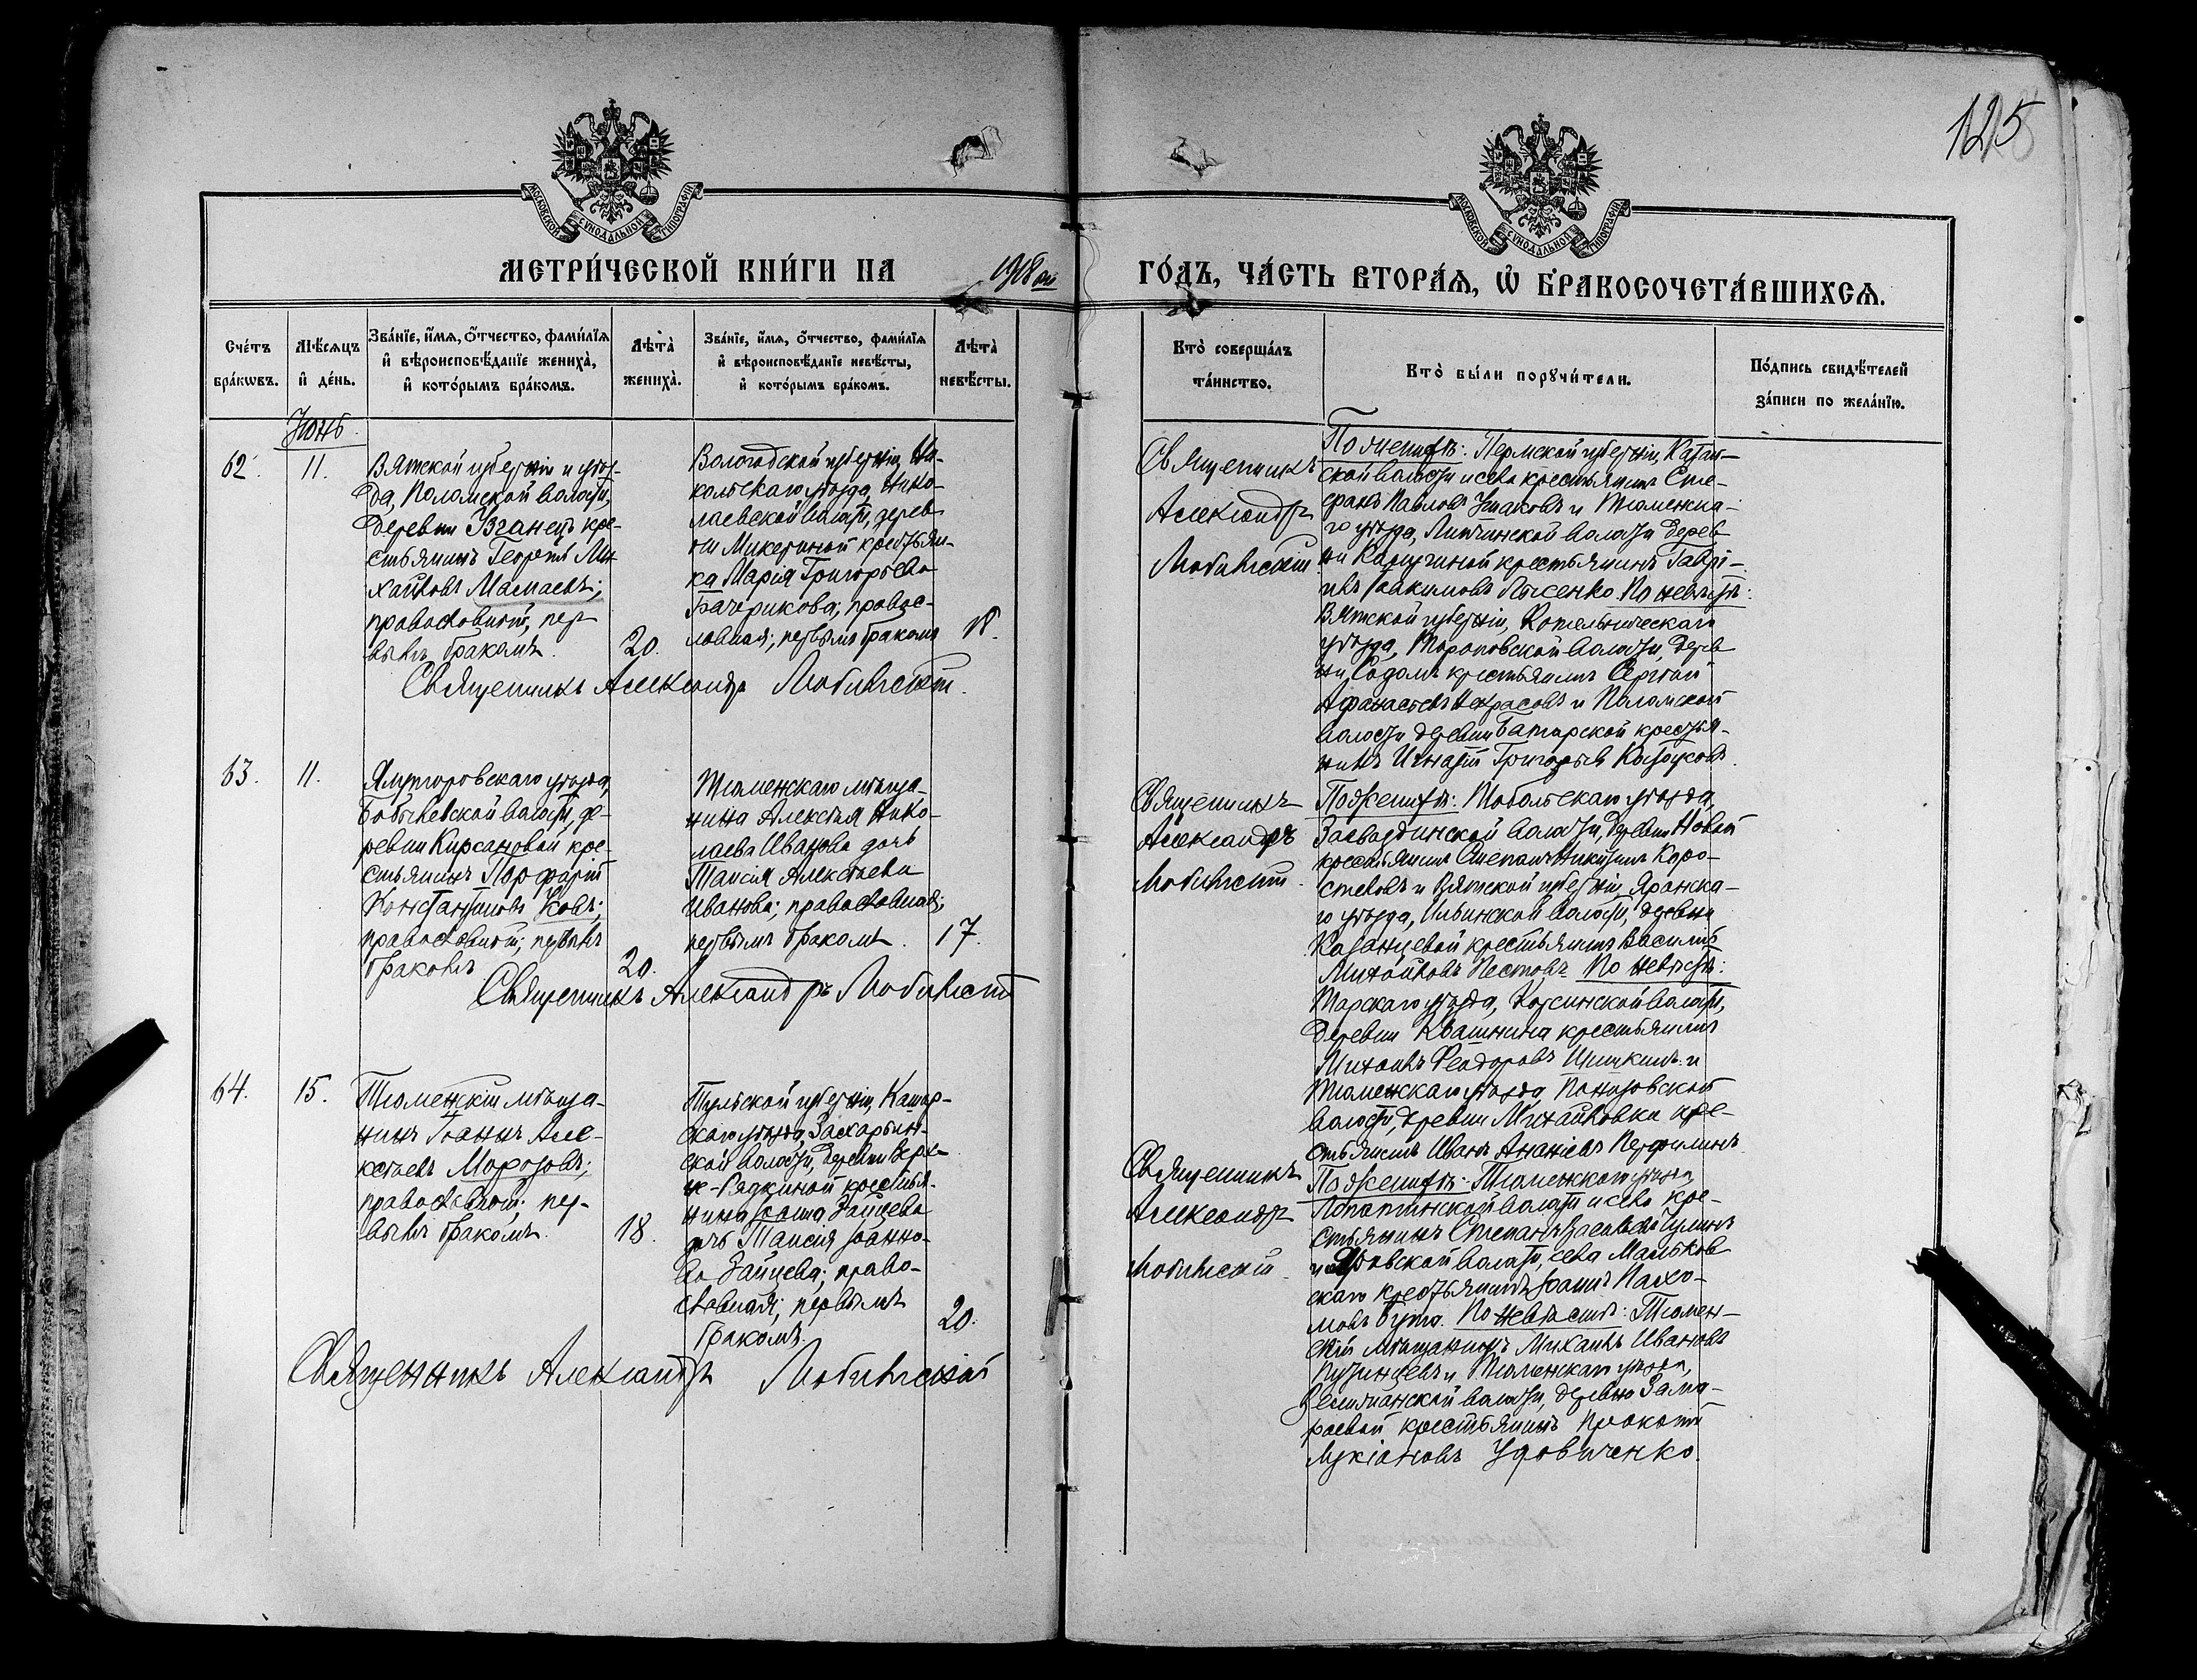 125
МОСКОВСКОЙ СѴНОДАЛЬНОЙ ТИПОГРАФІИ
МОСКОВСКОЙ СѴНОДАЛЬНОЙ ТИПОГРАФІИ
МЕТРИ́ЧЕСКОЙ КНИ́ГИ НА 1918 ой
ГО́ДЪ, ЧА́СТЬ ВТОРА́Ѧ, Ѡ҆ БРАКОСОЧЕТА́ВШИХСѦ.
Сче́тъ
бра́кѡвъ.
Мѣ́сѧцъ
и҆ де́нь.
Зва́нїе, и҆́мѧ, ѻ҆́тчество, фами́лїѧ
и҆ вѣроисповѣ́данїе жениха̀,
и҆ кото́рымъ бра́комъ.
Лѣта̀
жениха̀.
Зва́нїе, и҆́мѧ, ѻ҆́тчество, фами́лїѧ
и҆ вѣроисповѣ́данїе невѣ́сты,
и҆ кото́рымъ бра́комъ.
Лѣта̀
невѣ́сты.
Кто̀ соверша́лъ
та́инство.
Кто̀ бы́ли порꙋчи́тели.
По́дпись свидѣ́телей
за́писи по жела́нїю.
Іюнь.
62.
11.
Вятской губерніи и уѣз-
да, Поломской волости,
деревни кре-
стьянинъ Георгій Ми-
хайловъ Мамаевъ;
православный, пер-
вымъ бракомъ.
20.
Вологодской губерніи, Ни-
кольскаго уѣзда, Нико-
лаевской волости, дерев-
ни Микериной крестьян-
ка Марія Григорьева
Бачерикова; правос-
лавная; первымъ бракомъ
18.
Священникъ Александръ
Священникъ
Александръ
По женихѣ: Пермской губерніи, Казан-
ской волости и села крестьянинъ Сте-
фанъ Павловъ Ушаковъ и Тюменска-
го уѣзда, Липчинской волости дерев-
ни крестьянинъ Гаврі-
илъ Іоакимовъ Лысенко. По невѣстѣ:
Вятской губерніи, Котельническаго
уѣзда, Тороповской волости, дерев-
ни Содомъ крестьянинъ Сергѣй
Афанасьевъ Некрасовъ и Поломской
волости деревни крестья-
нинъ Игнатій Григорьевъ
63.
11.
Ялуторовскаго уѣзда,
волости, де-
ревни Кирсановой кре-
стьянинъ Порфирій
Константиновъ
православный; первымъ
бракомъ
20.
Тюменскаго мѣща-
нина Алексѣя Нико-
лаева Иванова дочь
Таисія Алексѣева
Иванова; православная;
первымъ бракомъ.
17.
Священникъ Александръ
Священникъ
Александръ
По женихѣ: Тобольскаго уѣзда,
волости, деревни Новой
крестьянинъ Степанъ Никитинъ Коро-
стелевъ и Вятской губерніи, Яранска-
го уѣзда, Ильинской волости, деревни
Казанцевой крестьянинъ Василій
Михайловъ Пестовъ. По невѣстѣ:
Тарскаго уѣзда, волости,
деревни Квашнина крестьянинъ
Михаилъ Феодоровъ Шишкинъ и
Тюменскаго уѣзда,
волости, деревни Михайловки кре-
стьянинъ Иванъ Ананіевъ Перфиловъ.
64.
15.
Тюменскій мѣща-
нинъ Іоаннъ Але-
ксѣевъ Морозовъ;
православный; пер-
вымъ бракомъ.
18.
Тульской губерніи, Кашир-
скаго уѣзда, Захарьин-
ской волости, деревни Верх-
не- крестья-
нина Іоанна Зайцева
дочь Таисія Іоанно-
ва Зайцева; право-
славная; первымъ
бракомъ.
20.
Священникъ Александръ
Священникъ
Александръ
По женихѣ: Тюменскаго уѣзда,
волости и села кре-
стьянинъ Степанъ Васильевъ
и волости, села Мальков-
скаго крестьянинъ Іоаннъ Пахо-
мовъ По невѣстѣ: Тюмен-
скій мѣщанинъ Михаилъ Ивановъ
и Тюменскаго уѣзда,
волости, деревни
крестьянинъ Прокопій
Лукіановъ Удовиченко.